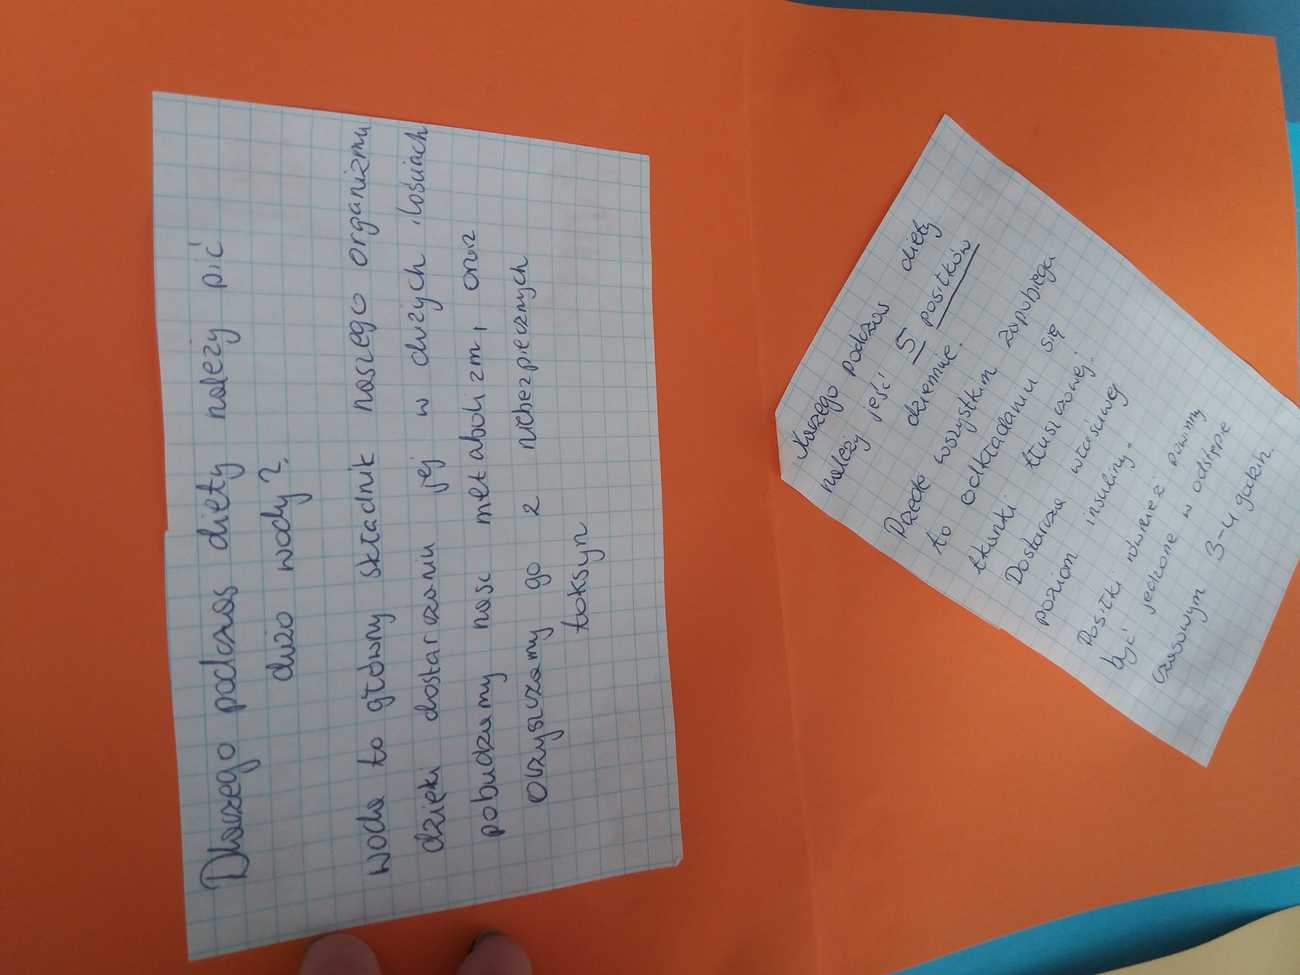 Dlaczego podczas diety należy pić
dużo wody?
woda to główny składnik naszego organizmu
dzięki dostarczaniu jej w dużych ilościach
pobudzamy nasz metabolizm, oraz
oczyszczamy go z niebezpiecznych
toksyn
podczas diety
należy jeść 5 posiłków
dziennie.
Przede wszystkim zapobiega
to odkładaniu się
tkanki tłuszczowej.
Dostarcza właściwej
poziom insuliny.
Posiłki również powinny
być jedzone w odstępie
czasowym 3-4 godzin.